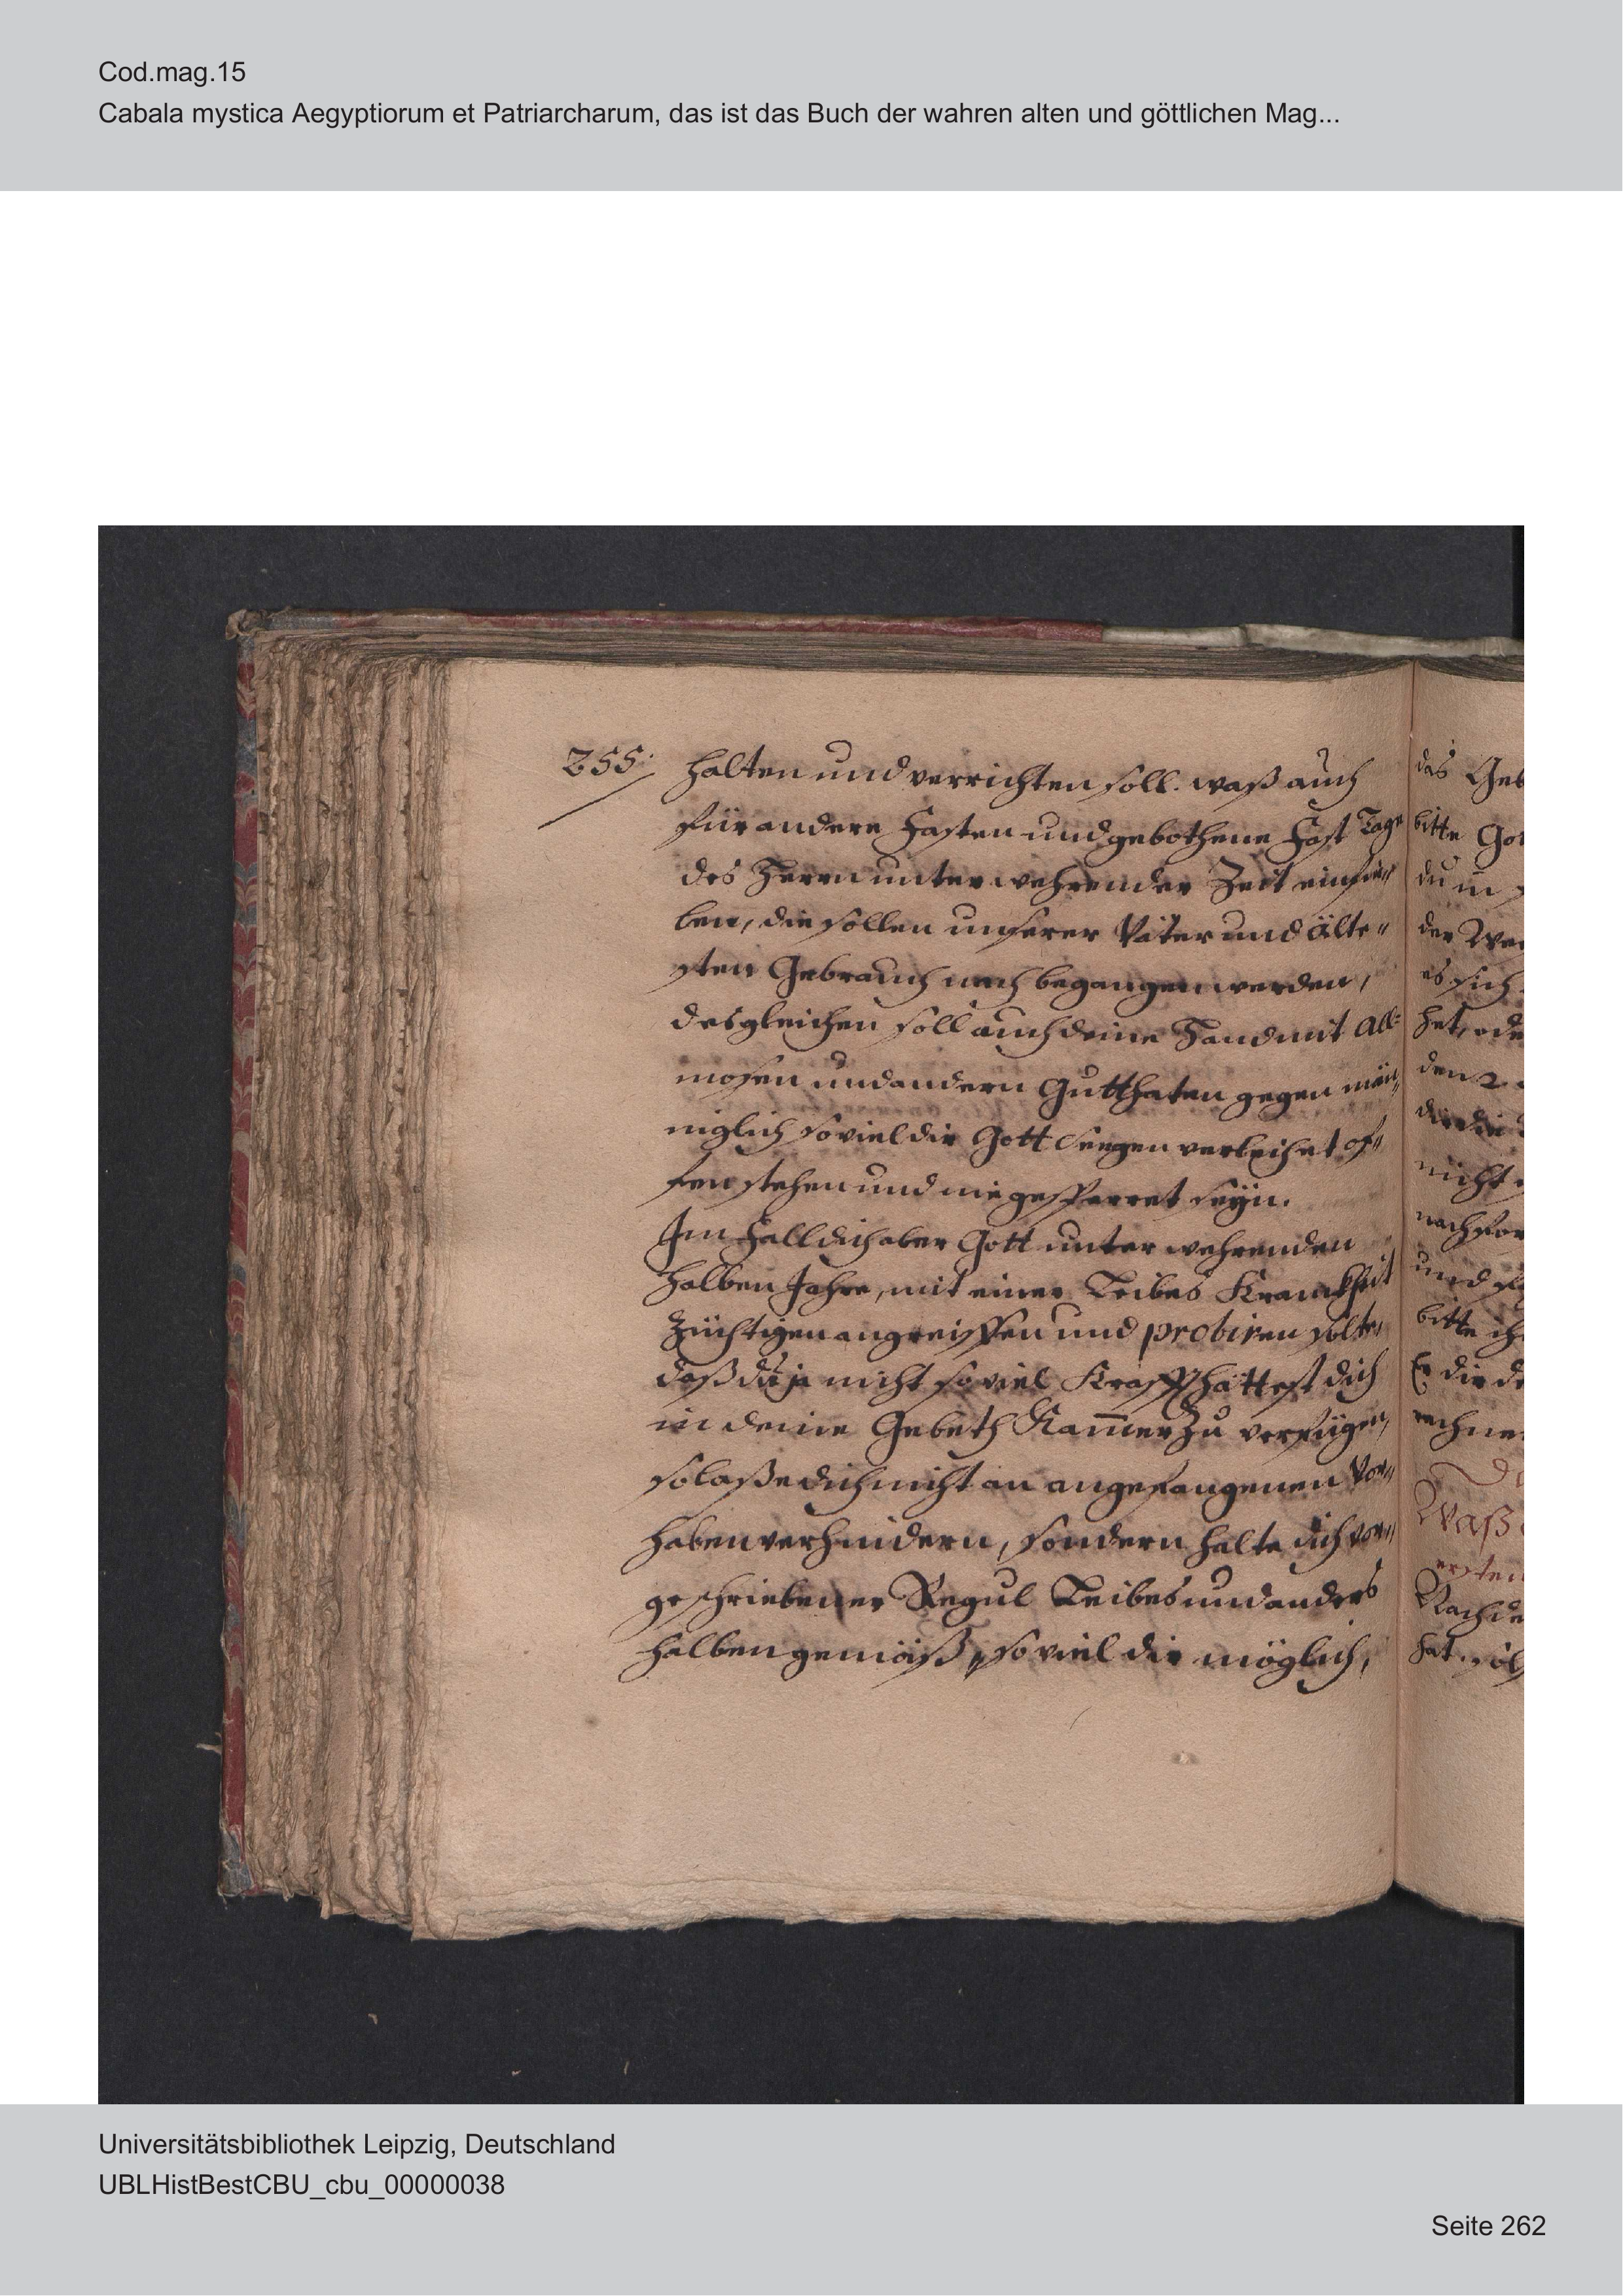 Cod.mag.15
Cabala mystica Aegyptiorum et Patriarcharum, das ist das Buch der wahren alten und göttlichen Mag...
255.
halten und verrichten soll. waß auch
für andere Fasten und gebothene Fast Tage
des Herrn unter wehrender Zeit einfie„
len, die sollen unserer Väter und Älte„
sten Gebrauch nach begangen werden,
desgleichen soll auch deine Hand mit All„
mosen und andern Gutthaten gegen män„
niglich so viel dir Gott Seegen verleihet of„
fen stehen und nie gesperret seÿn.
Im Fall dich aber Gott unter wehrenden
halben Jahre, mit einer Leibes Kranckheit
züchtigen angreiffen und probiren solte,
daß du ja nicht so viel Krafft hättest dich
in deine Gebeth Kam̅er zu verfügen,
so laße dich nicht an angefangenen Vor„
haben verhindern, sondern halte dich vor„
geschriebener Regul Leibes und anders
halben gemäß, so viel dir möglich,
das Geb
bitte Got
du in
der
es sich
hat, ode
den 2
nicht
nachfor
und
bitte ih
Er dir de
rechne
Waß
ersten
Nachde
hat
Universitätsbibliothek Leipzig, Deutschland
UBLHistBestCBU_cbu_00000038
Seite 262